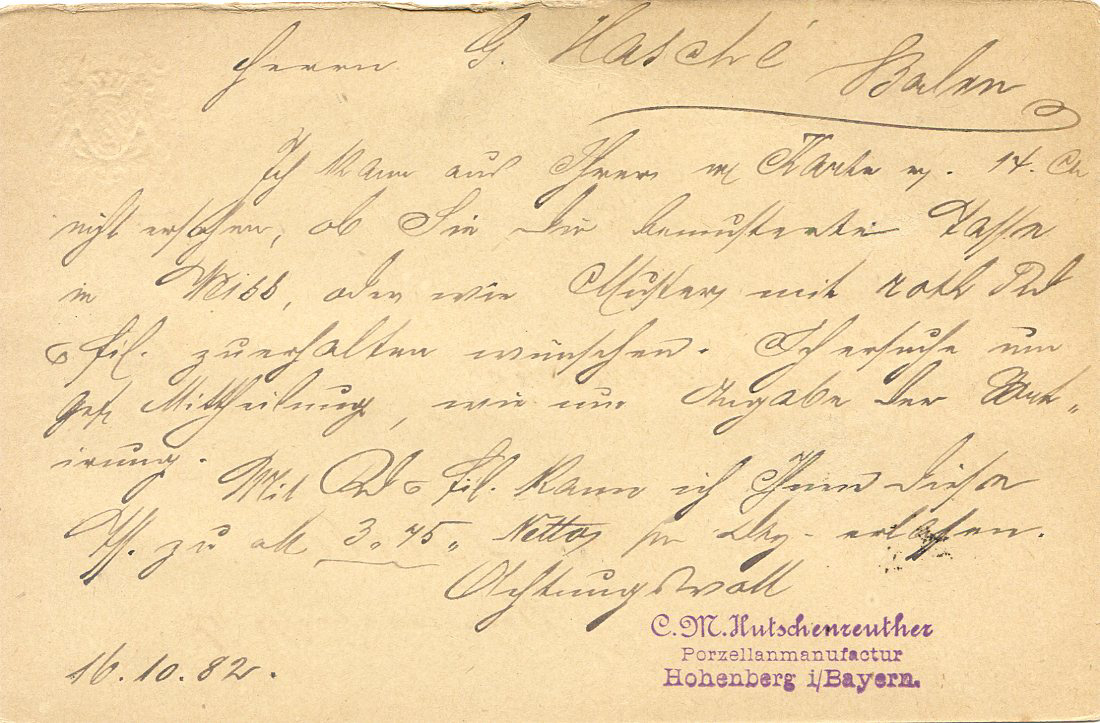 Herrn G. Hasché Balen
Ich kann aus Ihrer Karte v. 14. Ct
nicht ersehen, ob Sie die bemusterte Tasse
in Weiss, oder wie Muster mit roth Rd
& fil. zu erhalten wünschen. Ich ersuche um
gef. Mittheilung, wie um Angabe der
irung.
Mit Rd & fil. kann ich Ihnen diese
Ts. zu 3,,75,, Netto pr Dtz. erlassen.
Achtungsvoll
C. M. Hutschenreuther
Porzellanmanufactur
Hohenberg i/Bayern.
16.10.82.